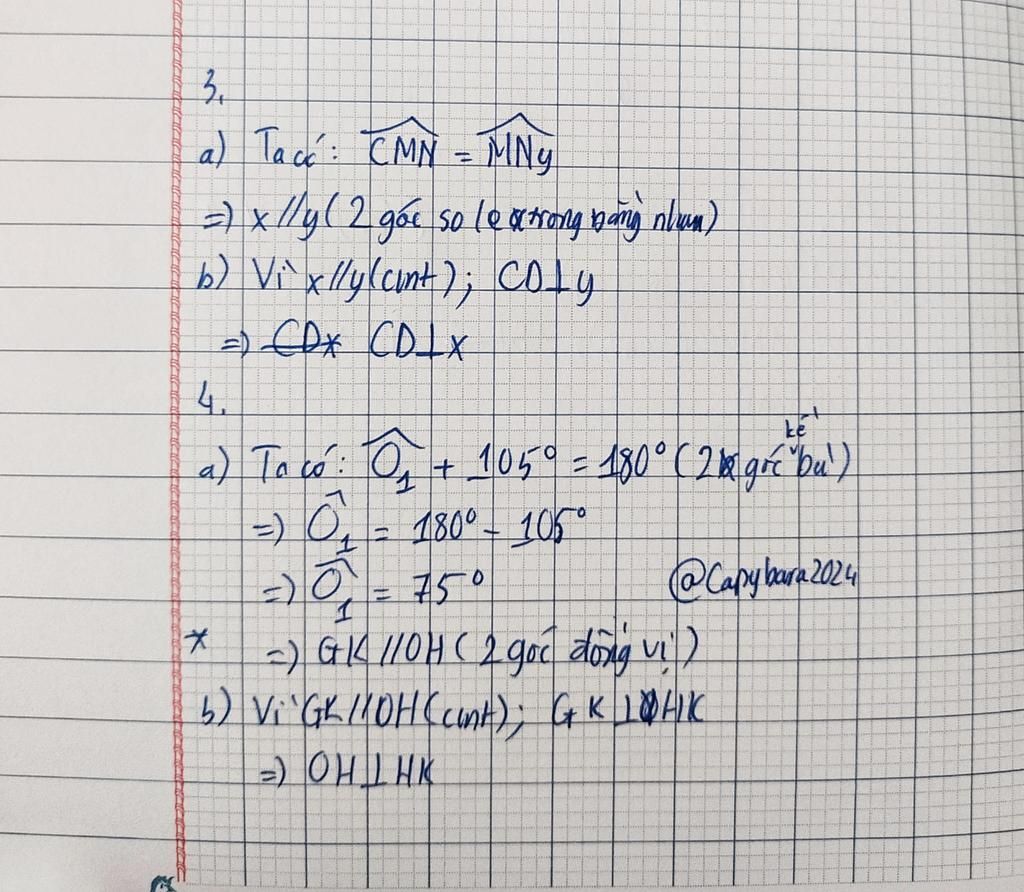 3.
a) Ta có: CMN = MNy
=) x//y ( 2 góc so le trong bằng nhau)
b) Vì x//y (cmt); CD⊥y
=) CDx CD⊥x
4.
a) Ta có: O1 + 105° = 180° ( 2 góc kề bù )
=) O1 = 180° - 105°
=) O1 = 75°
@Capybara2024
* =) GK//OH ( 2 góc đồng vị )
b) Vì GK//OH (cmt); GK⊥HK
=) OH⊥HK